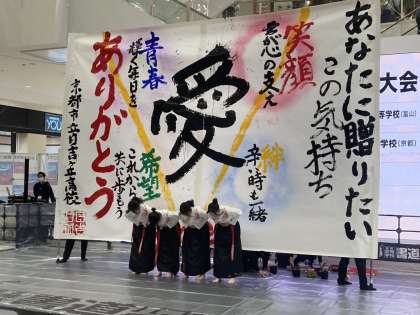 あなたに贈りたい
この気持ち
笑顔
心の支え
絆
辛い時も一緒
愛
青春
輝く毎日を
希望
これからも
共に歩もう
ありがとう
京都市立日吉ヶ丘高校
大会
等学校(富山)
学校(京都)
YOU
書道